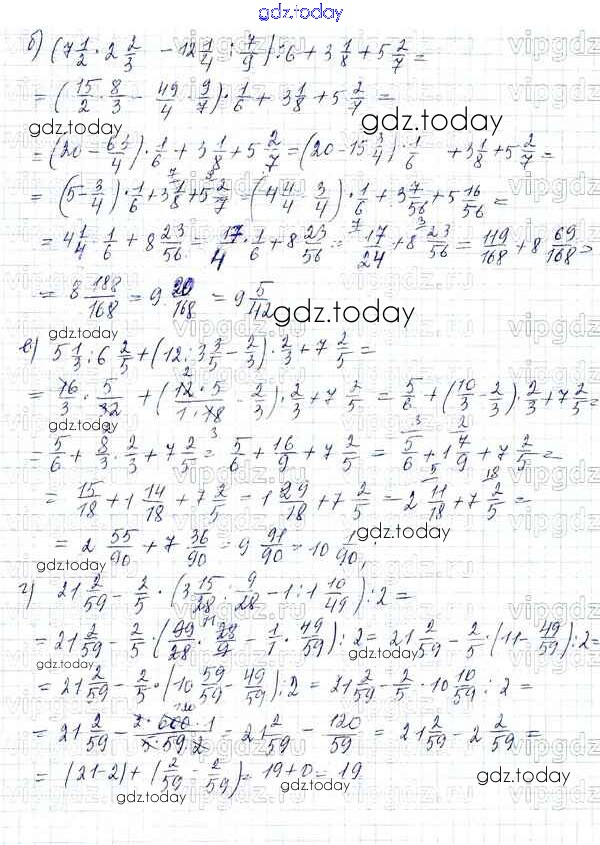 gdz.today
б) (7 1/2 · 2 2/3 - 12 1/4 : 7/9) : 6 + 3 1/8 + 5 2/7 =
= (15/2 · 8/3 - 49/4 · 9/7) · 1/6 + 3 1/8 + 5 2/7 =
gdz.today gdz.today
= (20 - 63/4) · 1/6 + 3 1/8 + 5 2/7 = (20 - 15 3/4) · 1/6 + 3 1/8 + 5 2/7 =
= (5 - 3/4) · 1/6 + 3 1/8 + 5 2/7 = (4 4/4 - 3/4) · 1/6 + 3 7/56 + 5 16/56 =
= 4 1/4 · 1/6 + 8 23/56 = 17/4 · 1/6 + 8 23/56 = 17/24 + 8 23/56 = 119/168 + 8 69/168 =
= 8 188/168 = 9 20/168 = 9 5/42
gdz.today gdz.today
в) 5 1/3 : 6 2/5 + (12 : 3 3/5 - 2/3) · 2/3 + 7 2/5 =
= 16/3 · 5/32 + (12 · 5/1 · 18 - 2/3) · 2/3 + 7 2/5 = 5/6 + (10/3 - 2/3) · 2/3 + 7 2/5 =
= 5/6 + 8/3 · 2/3 + 7 2/5 = 5/6 + 16/9 + 7 2/5 = 5/6 + 1 7/9 + 7 2/5 =
= 15/18 + 1 14/18 + 7 2/5 = 1 29/18 + 7 2/5 = 2 11/18 + 7 2/5 =
= 2 55/90 + 7 36/90 = 9 91/90 = 10 1/90;
gdz.today gdz.today
г) 21 2/59 - 2/5 · (3 15/28 : 9/28 - 1 : 1 10/49) : 2 =
= 21 2/59 - 2/5 · (99/28 · 28/9 - 1/1 · 49/59) : 2 = 21 2/59 - 2/5 · (11 - 49/59) : 2 =
gdz.today gdz.today
= 21 2/59 - 2/5 · (10 59/59 - 49/59) : 2 = 21 2/59 - 2/5 · 10 10/59 : 2 =
gdz.today gdz.today
= 21 2/59 - 2 · 600 · 1/5 · 59 · 2 = 21 2/59 - 120/59 = 21 2/59 - 2 2/59 =
gdz.today gdz.today
= (21 - 2) + (2/59 - 2/59) = 19 + 0 = 19
gdz.today gdz.today